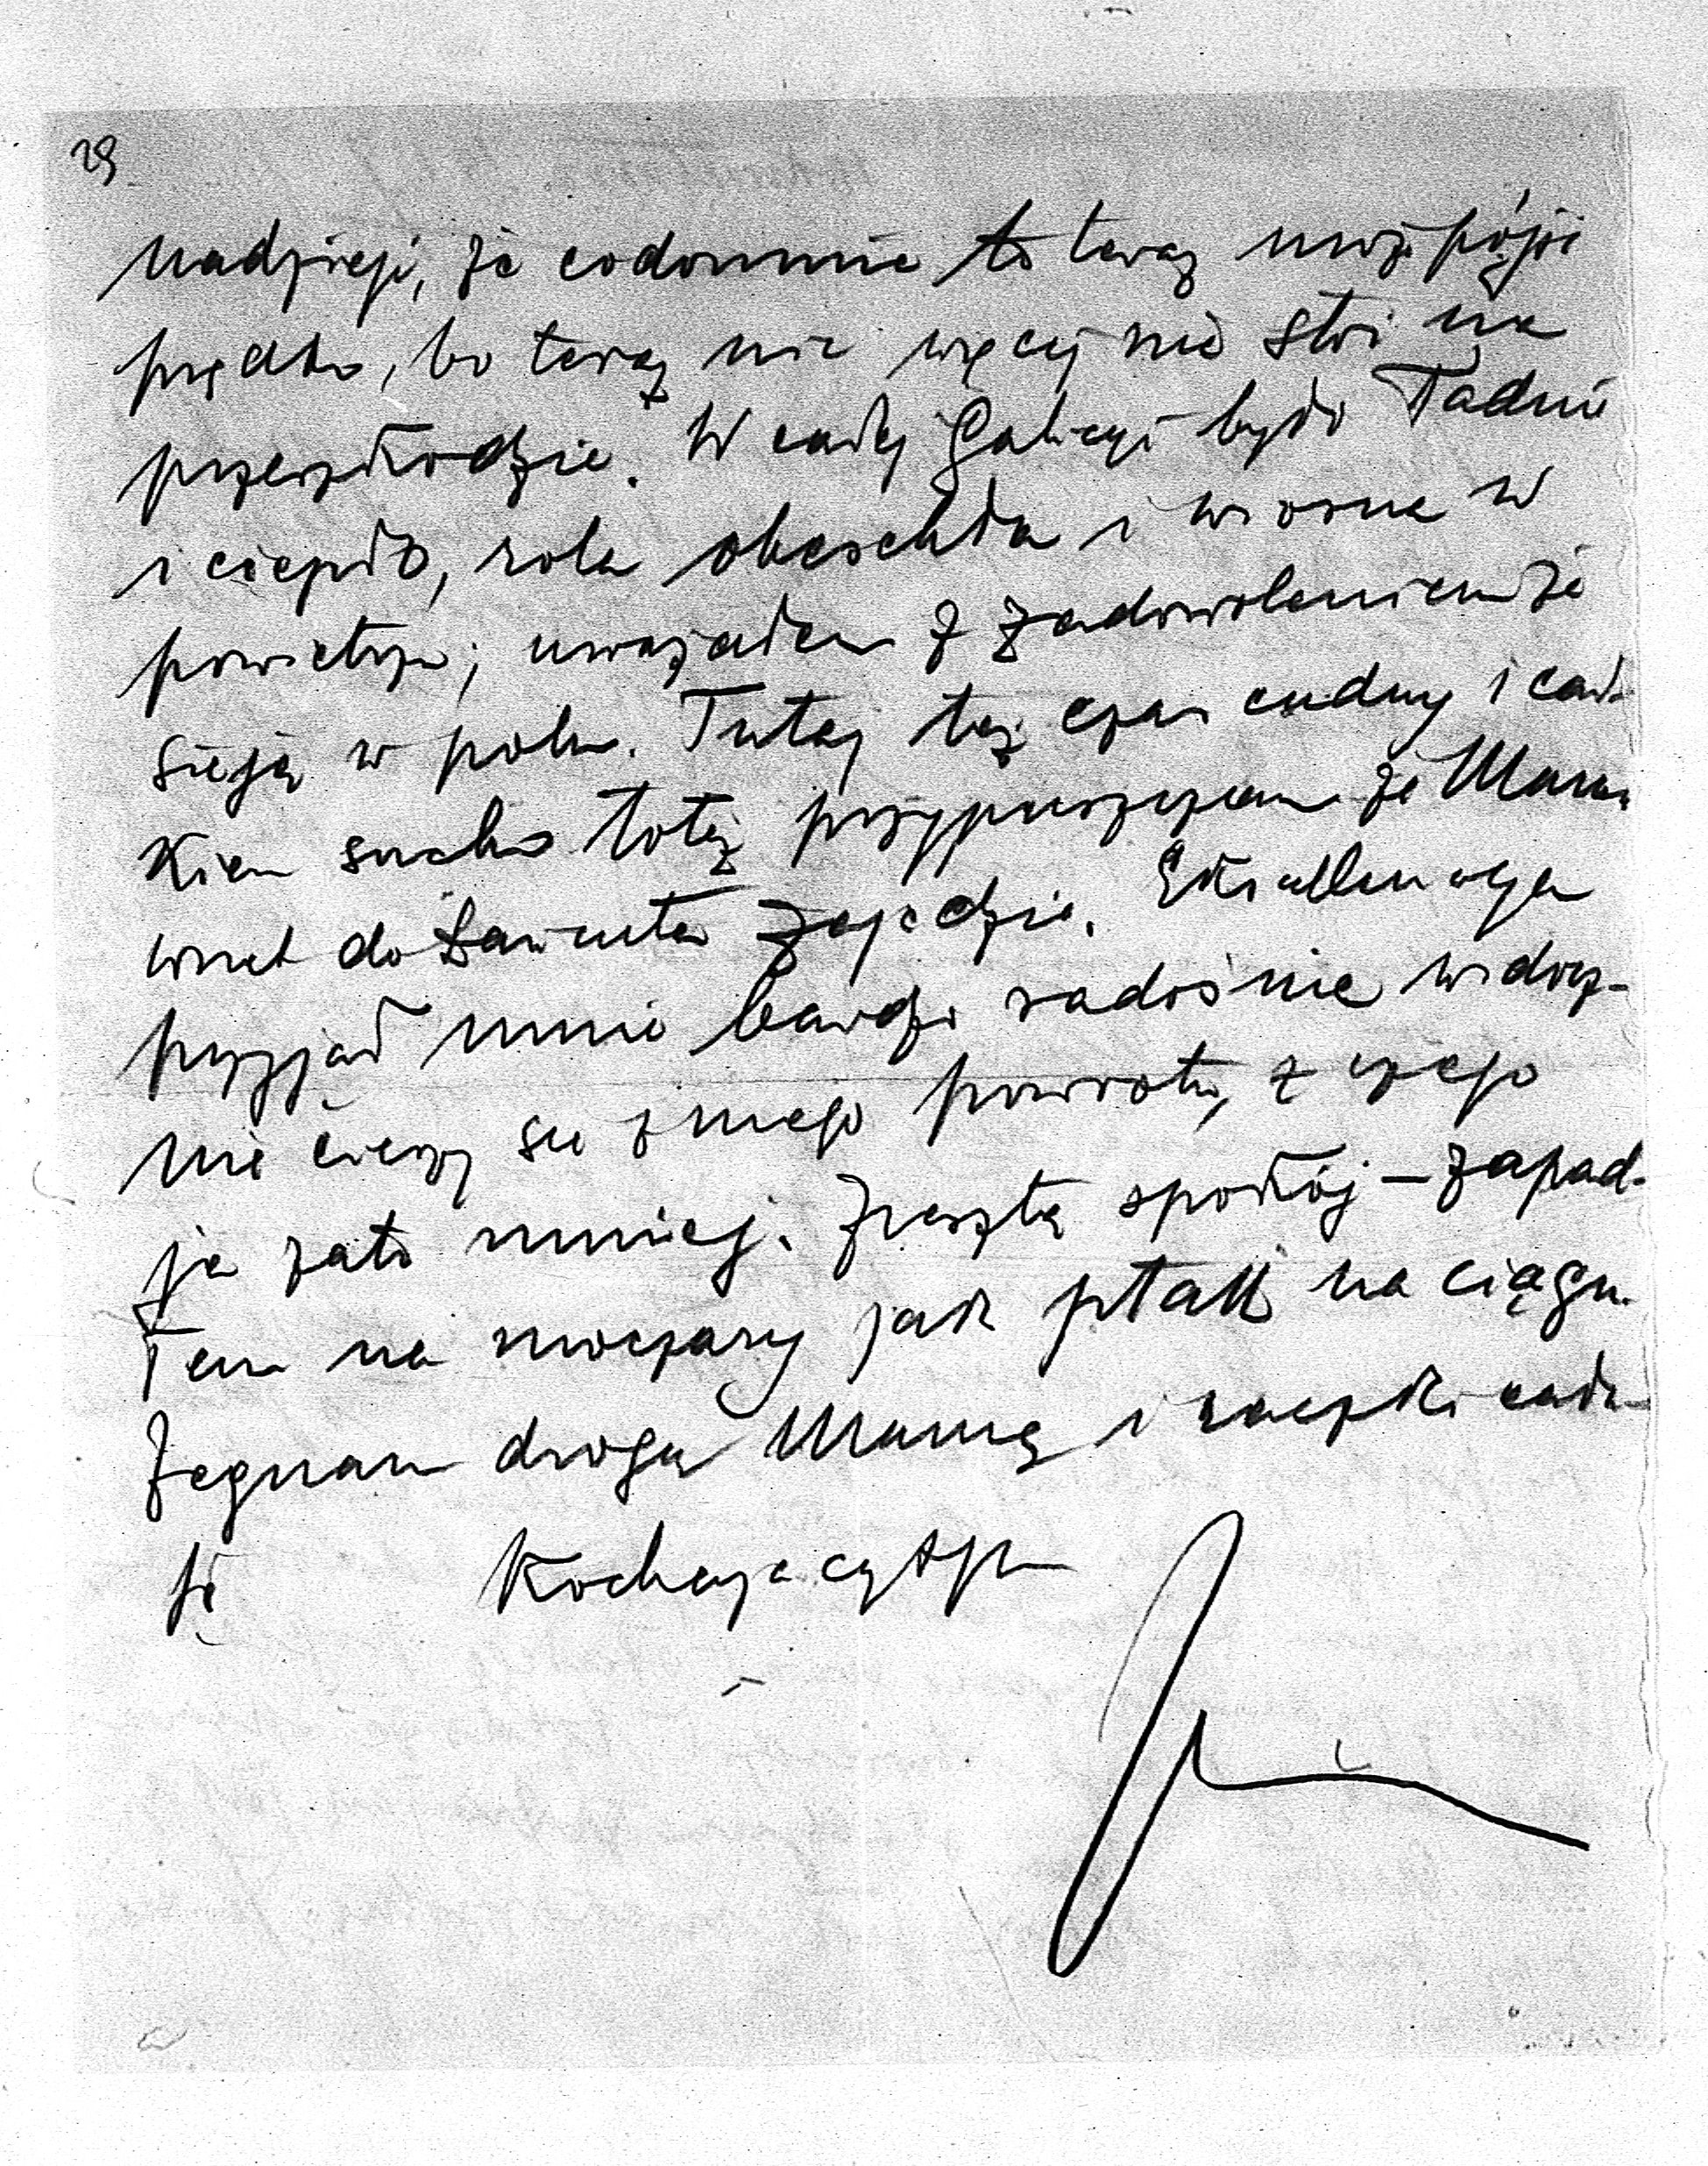 29
nadzieję, że codomnie to teraz może pójść
prędko, bo teraz nic więcej nie stoi na
przeszkodzie. W całej Galicyi było ładnie
i ciepło, rola obeschła i wiosna w
powietrzu; uważałem z zadowoleniem że
sieją w polu. Tutaj też czas cudny i cał-
kiem sucho toteż przypuszczam że Mama
wnet do Łańcuta zajedzie.
przyjął mnie bardzo radośnie widocz-
nie cieszy się z mego powrotu, z czego
ja zato mniej. Zresztą spokój – zapad-
łem na moczary jak ptak na ciągu.
Żegnam drogą Mamę i rączki cału-
ję Kochający syn